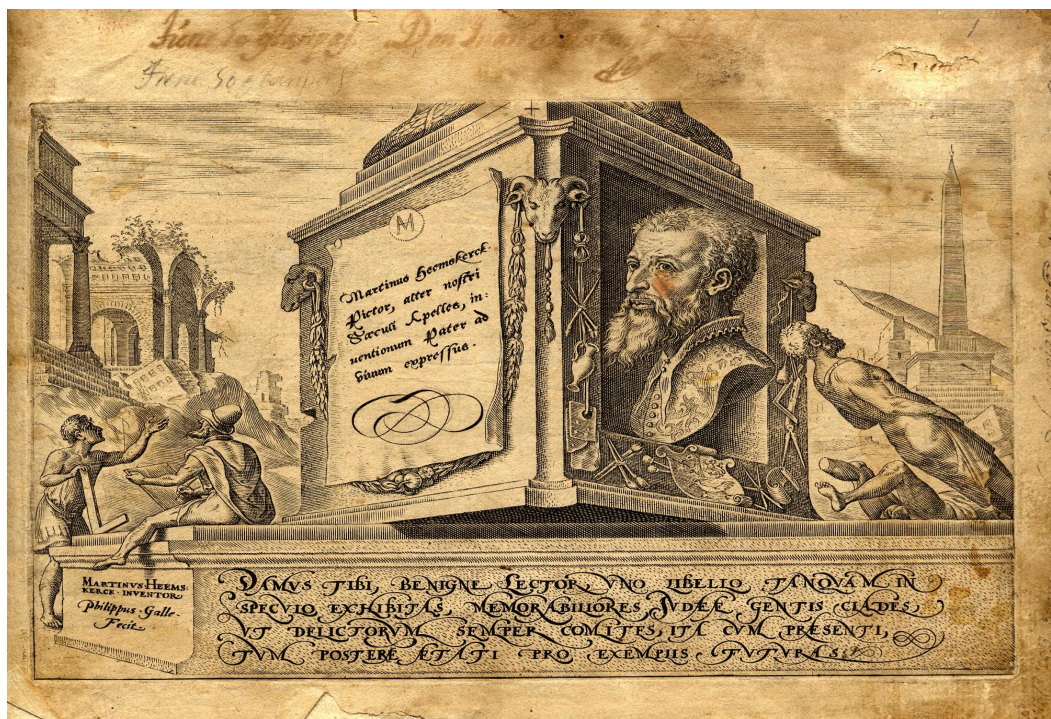 1
M
Martinus Heemskerck
Pictor, alter nostri
Sæculi Apelles, in:
uentionum Pater ad
uiuum expressus.
MARTINVS HEEMS
KERCK INVENTOR
Philippus Galle
Fecit
DAMVS TIBI, BENIGNE LECTOR, VNO LIBELLO TANQVAM IN
SPECVLO EXHIBITAS, MEMORABILIORES IVDEÆ GENTIS CLADES,
VT DELICTORVM SEMPER COMITES, ITA CVM PRÆSENTI,
TVM POSTERE ÆTATI PRO EXEMPLIS FVTVRAS